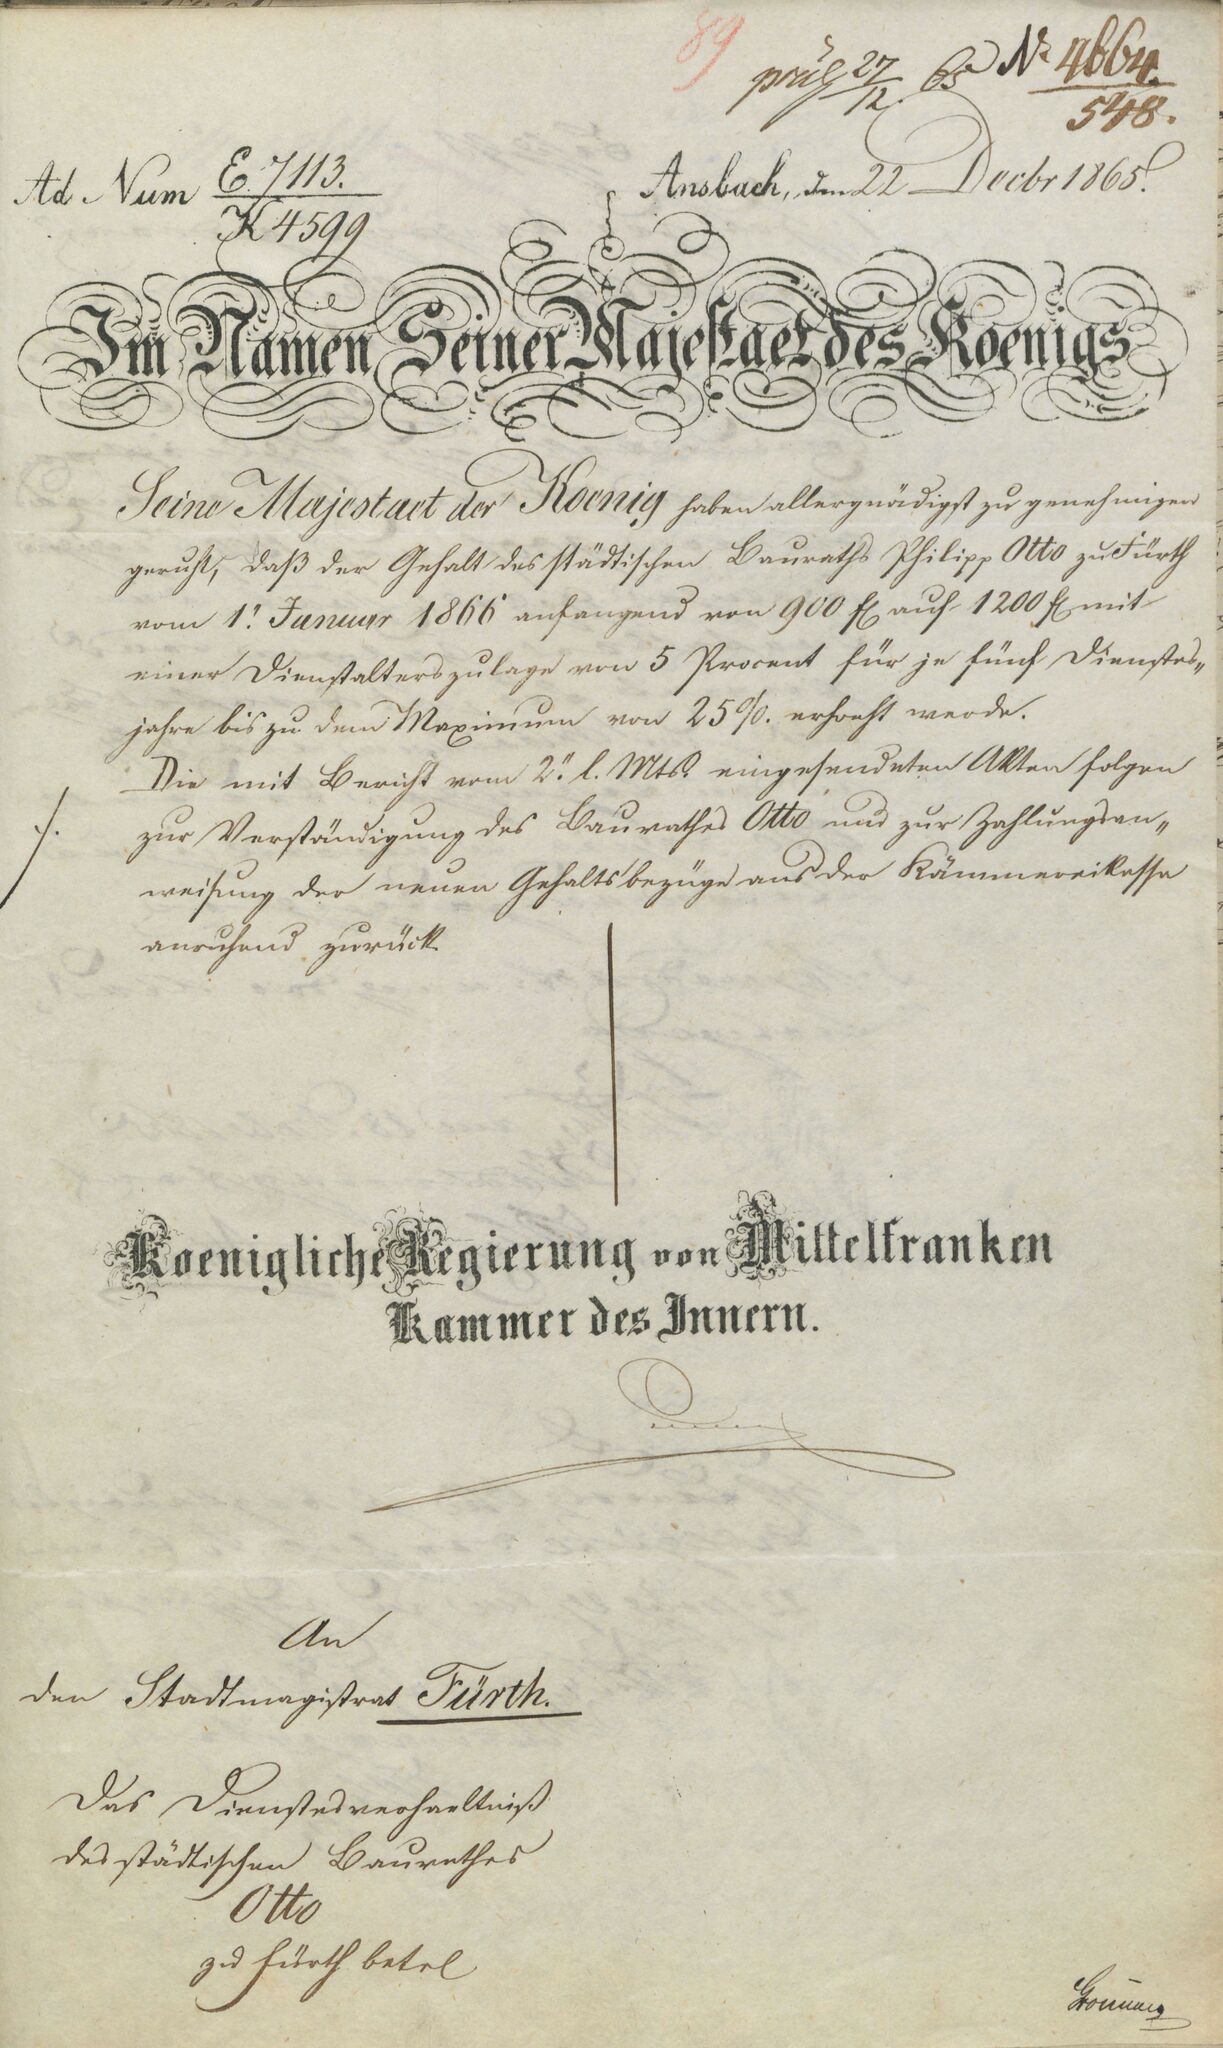 89
präs 27/12. 65 Nr 4664.
548.
Ad Num E. 7113.
K 4599
Ansbach, den 22 Decbr 1865.
Im Namen Seiner Majestaet des Koenigs
Seine Majestaet der Koenig haben allergnädigst zu genehmigen
geruht, daß der Gehalt des städtischen Bauraths Philipp Otto zu Fürth
vom 1t. Januar 1866 anfangend von 900 fl auf 1200 fl mit
einer Dienstalterszulage von 5 Procent für je fünf Dienstes„
jahre bis zu dem Maximum von 25%. erhoeht werde.
Die mit Bericht vom 2n. l. Mts. eingesendeten Akten folgen
zur Verständigung des Baurathes Otto und zur Zahlungsan„
weisung der neuen Gehaltsbezüge aus der Kämmereikasse
anruhend zurück.
Koenigliche Regierung von Mittelfranken
Kammer des Innern.
An
den Stadtmagistrat Fürth.
Das Dienstesverhaeltniß
des städtischen Baurathes
Otto
zu Fürth betrl